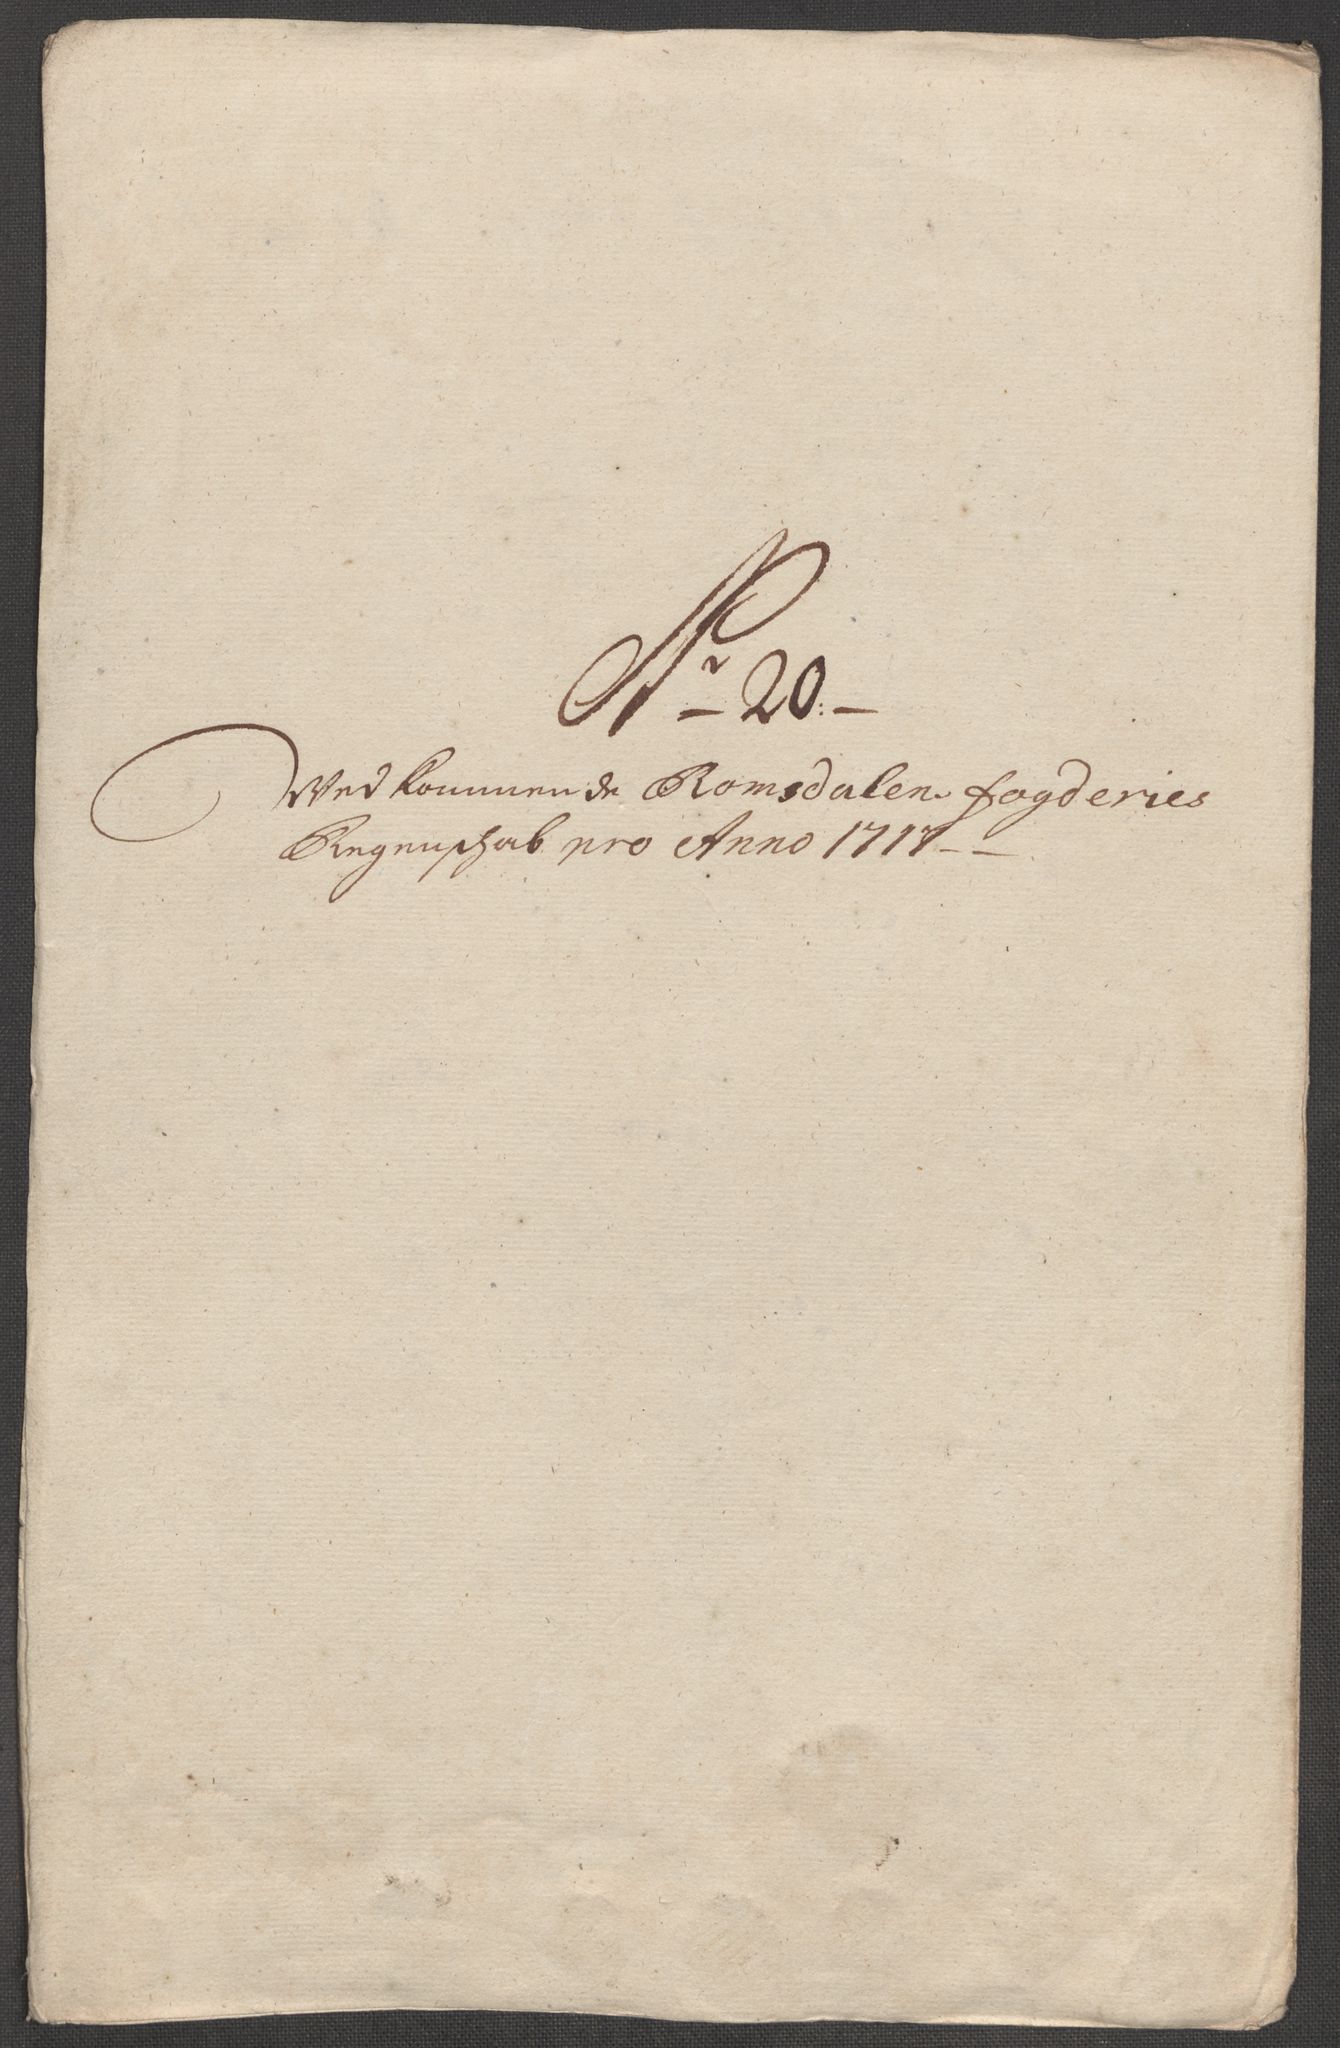 Nr 20.
Vedkommende Romsdalens fogderies
Regenschab pro Anno 1717